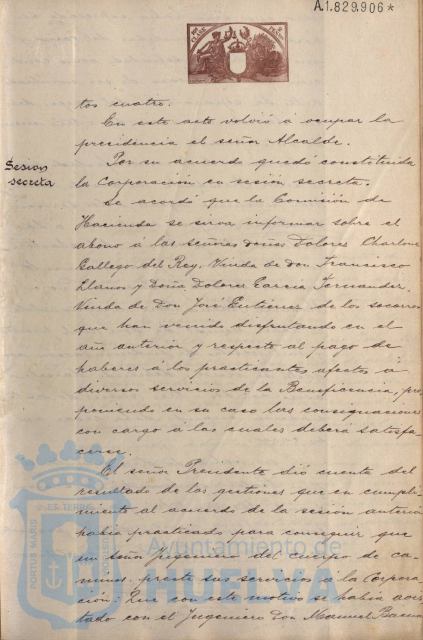 A.1.829.906*
tos cuatro.
En este acto volvió á ocupar la
presidencia el señor Alcalde.
Sesion
secreta
Por su acuerdo quedó constituida
la Corporación en sesión secreta.
Se acordó que la Comisión de
Hacienda se sirva informar sobre el
abono á las señoras doña Dolores Charlone
Gallego del Rey, Viuda de don Francisco
Llanos y Doña Dolores Garcia Fernandez,
Viuda de Don José Gutierrez de los socorros
que han venido disfrutando en el
año anterior y respecto al pago de
haberes á los practicantes afectos á
diversos servicios de la Beneficencia, pro
poniendo en su caso las consignaciones
con cargo á las cuales deberá satisfa
cerse.
El señor Presidente dió cuenta del
resultado de las gestiones que en cumpli
miento al acuerdo de la sesión anterior
habia practicado para conseguir que
un señor Ingeniero del cuerpo de ca
minos, preste sus servicios á la Corpora
ción: Que con este motivo se habia avis
tado con el Ingeniero Don Manuel
PORTUS MARIS
ET TERRAE
Ayuntamiento de
HUELVA